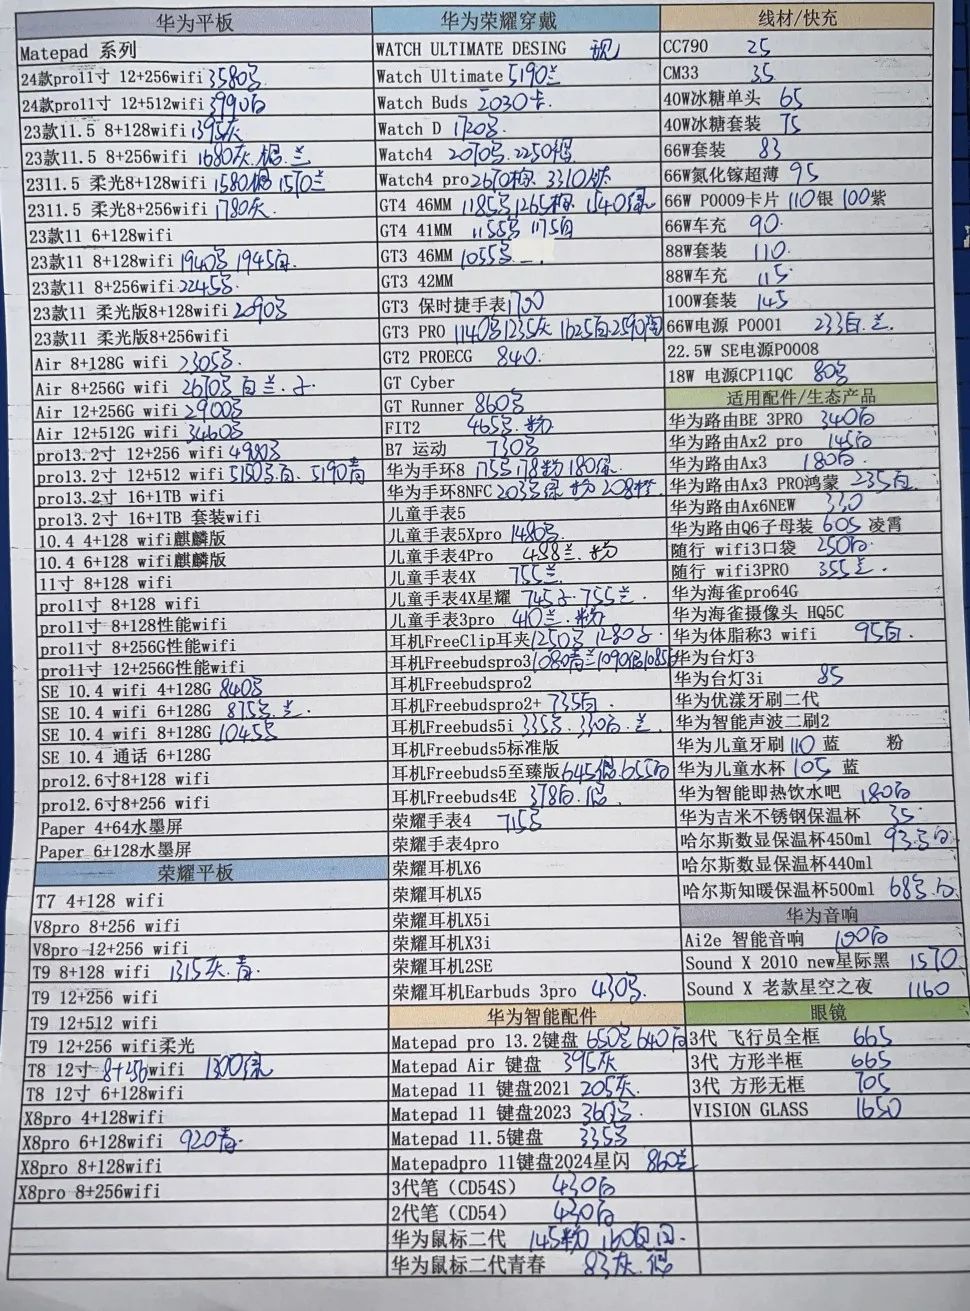 华为平板
Matepad 系列
24款pro11寸 12+256wifi 3580
24款pro11寸 12+512wifi 3990白
23款11.5 8+128wifi 1395灰
23款11.5 8+256wifi 1680灰. 兰
2311.5 柔光8+128wifi 1580 1570兰
2311.5 柔光8+256wifi 1780灰
23款11 6+128wifi
23款11 8+128wifi 1940 1945白
23款11 8+256wifi 2245
23款11 柔光版8+128wifi 2090
23款11 柔光版8+256wifi
Air 8+128G wifi 2305
Air 8+256G wifi 2670 白 兰
Air 12+256G wifi 2900
Air 12+512G wifi 3460
pro13.2寸 12+256 wifi 4980
pro13.2寸 12+512 wifi 5150 白. 5190青
pro13.2寸 16+1TB wifi
pro13.2寸 16+1TB 套装wifi
10.4 4+128 wifi麒麟版
10.4 6+128 wifi麒麟版
11寸 8+128 wifi
pro11寸 8+128 wifi
pro11寸 8+128性能wifi
pro11寸 8+256G性能wifi
pro11寸 12+256G性能wifi
SE 10.4 wifi 4+128G 840
SE 10.4 wifi 6+128G 875 兰.
SE 10.4 wifi 8+128G 1045
SE 10.4 通话 6+128G
pro12.6寸8+128 wifi
pro12.6寸8+256 wifi
Paper 4+64水墨屏
Paper 6+128水墨屏
荣耀平板
T7 4+128 wifi
V8pro 8+256 wifi
V8pro 12+256 wifi
T9 8+128 wifi 1315灰. 青.
T9 12+256 wifi
T9 12+512 wifi
T9 12+256 wifi柔光
T8 12寸 8+256wifi 1300绿
T8 12寸 6+128wifi
X8pro 4+128wifi
X8pro 6+128wifi 920青.
X8pro 8+128wifi
X8pro 8+256wifi
华为荣耀穿戴
WATCH ULTIMATE DESING 现
Watch Ultimate 5190兰
Watch Buds 2030卡
Watch D 1720
Watch4 2070 2250
Watch4 pro 2670 3310
GT4 46MM 1185 1265 1340绿
GT4 41MM 1155 1175白
GT3 46MM 1055
GT3 42MM
GT3 保时捷手表 1700
GT3 PRO 1140 1235灰 1625白 2590
GT2 PROECG 840.
GT Cyber
GT Runner 860
FIT2 465 粉
B7 运动 730
华为手环8 175 178粉 180绿.
华为手环8NFC 203 绿 粉 208橙
儿童手表5
儿童手表5Xpro 1480
儿童手表4Pro 488兰. 粉
儿童手表4X 755兰.
儿童手表4X星耀 745 755兰.
儿童手表3pro 410兰. 粉
耳机FreeClip耳夹 1250 1280
耳机Freebudspro3 1080 兰 1090银 1085
耳机Freebudspro2
耳机Freebudspro2+ 735白.
耳机Freebuds5i 335 330白. 兰
耳机Freebuds5标准版
耳机Freebuds5至臻版 645银 655白
耳机Freebuds4E 378白. 银
荣耀手表4 715
荣耀手表4pro
荣耀耳机X6
荣耀耳机X5
荣耀耳机X5i
荣耀耳机X3i
荣耀耳机2SE
荣耀耳机Earbuds 3pro 430
华为智能配件
Matepad pro 13.2键盘 650 640白
Matepad Air 键盘 395灰
Matepad 11 键盘2021 205灰.
Matepad 11 键盘2023 360
Matepad 11.5键盘 335
Matepadpro 11键盘2024星闪 860兰
3代笔（CD54S） 430白
2代笔（CD54） 430白
华为鼠标二代 145粉 160
华为鼠标二代青春 83灰. 银
线材/快充
CC790 25
CM33 35
40W冰糖单头 65
40W冰糖套装 75
66W套装 83
66W氮化镓超薄 95
66W P0009卡片 110银 100紫
66W车充 90.
88W套装 110.
88W车充 115
100W套装 145
66W电源 P0001 233白. 兰.
22.5W SE电源P0008
18W 电源CP11QC 80
适用配件/生态产品
华为路由BE 3PRO 340白
华为路由Ax2 pro 145白
华为路由Ax3 180白.
华为路由Ax3 PRO鸿蒙 235白
华为路由Ax6NEW 330
华为路由Q6子母装 605 凌霄
随行 wifi3口袋 250白.
随行 wifi3PRO 355兰.
华为海雀pro64G
华为海雀摄像头 HQ5C
华为体脂称3 wifi 95白.
华为台灯3
华为台灯3i 85
华为优漾牙刷二代
华为智能声波二刷2
华为儿童牙刷 110 蓝 粉
华为儿童水杯 105 蓝
华为智能即热饮水吧 180白
华为吉米不锈钢保温杯 35.
哈尔斯数显保温杯450ml 93. 白
哈尔斯数显保温杯440ml
哈尔斯知暖保温杯500ml 68 白
华为音响
Ai2e 智能音响 190白
Sound X 2010 new星际黑 1570
Sound X 老款星空之夜 1160
眼镜
3代 飞行员全框 665
3代 方形半框 665
3代 方形无框 705
VISION GLASS 1650